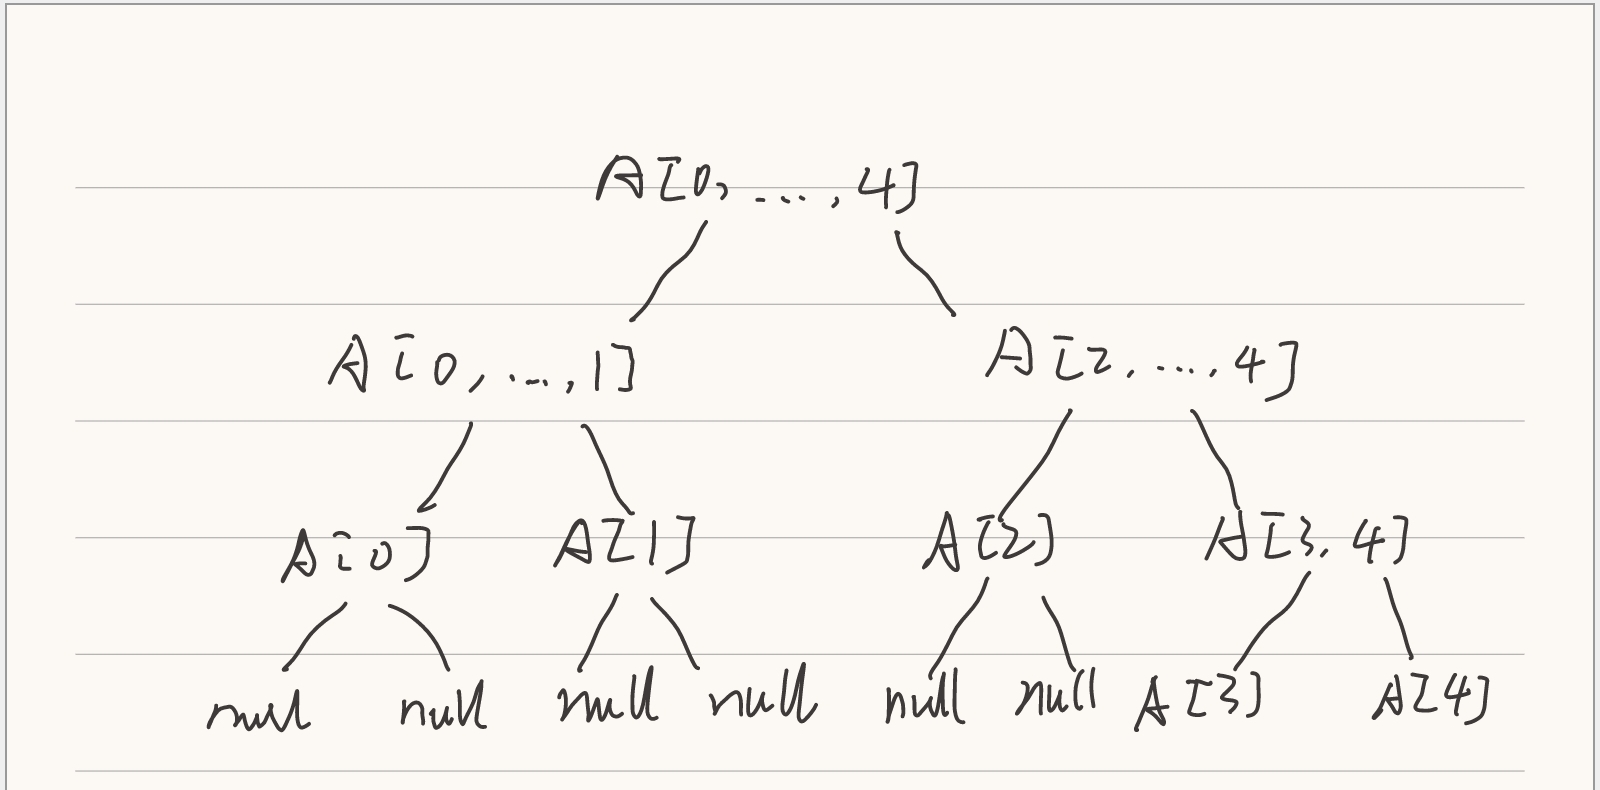 A[0, ..., 4]
A[0, ..., 1] A[2, ..., 4]
A[0] A[1] A[2] A[3, 4]
null null null null null null A[3] A[4]